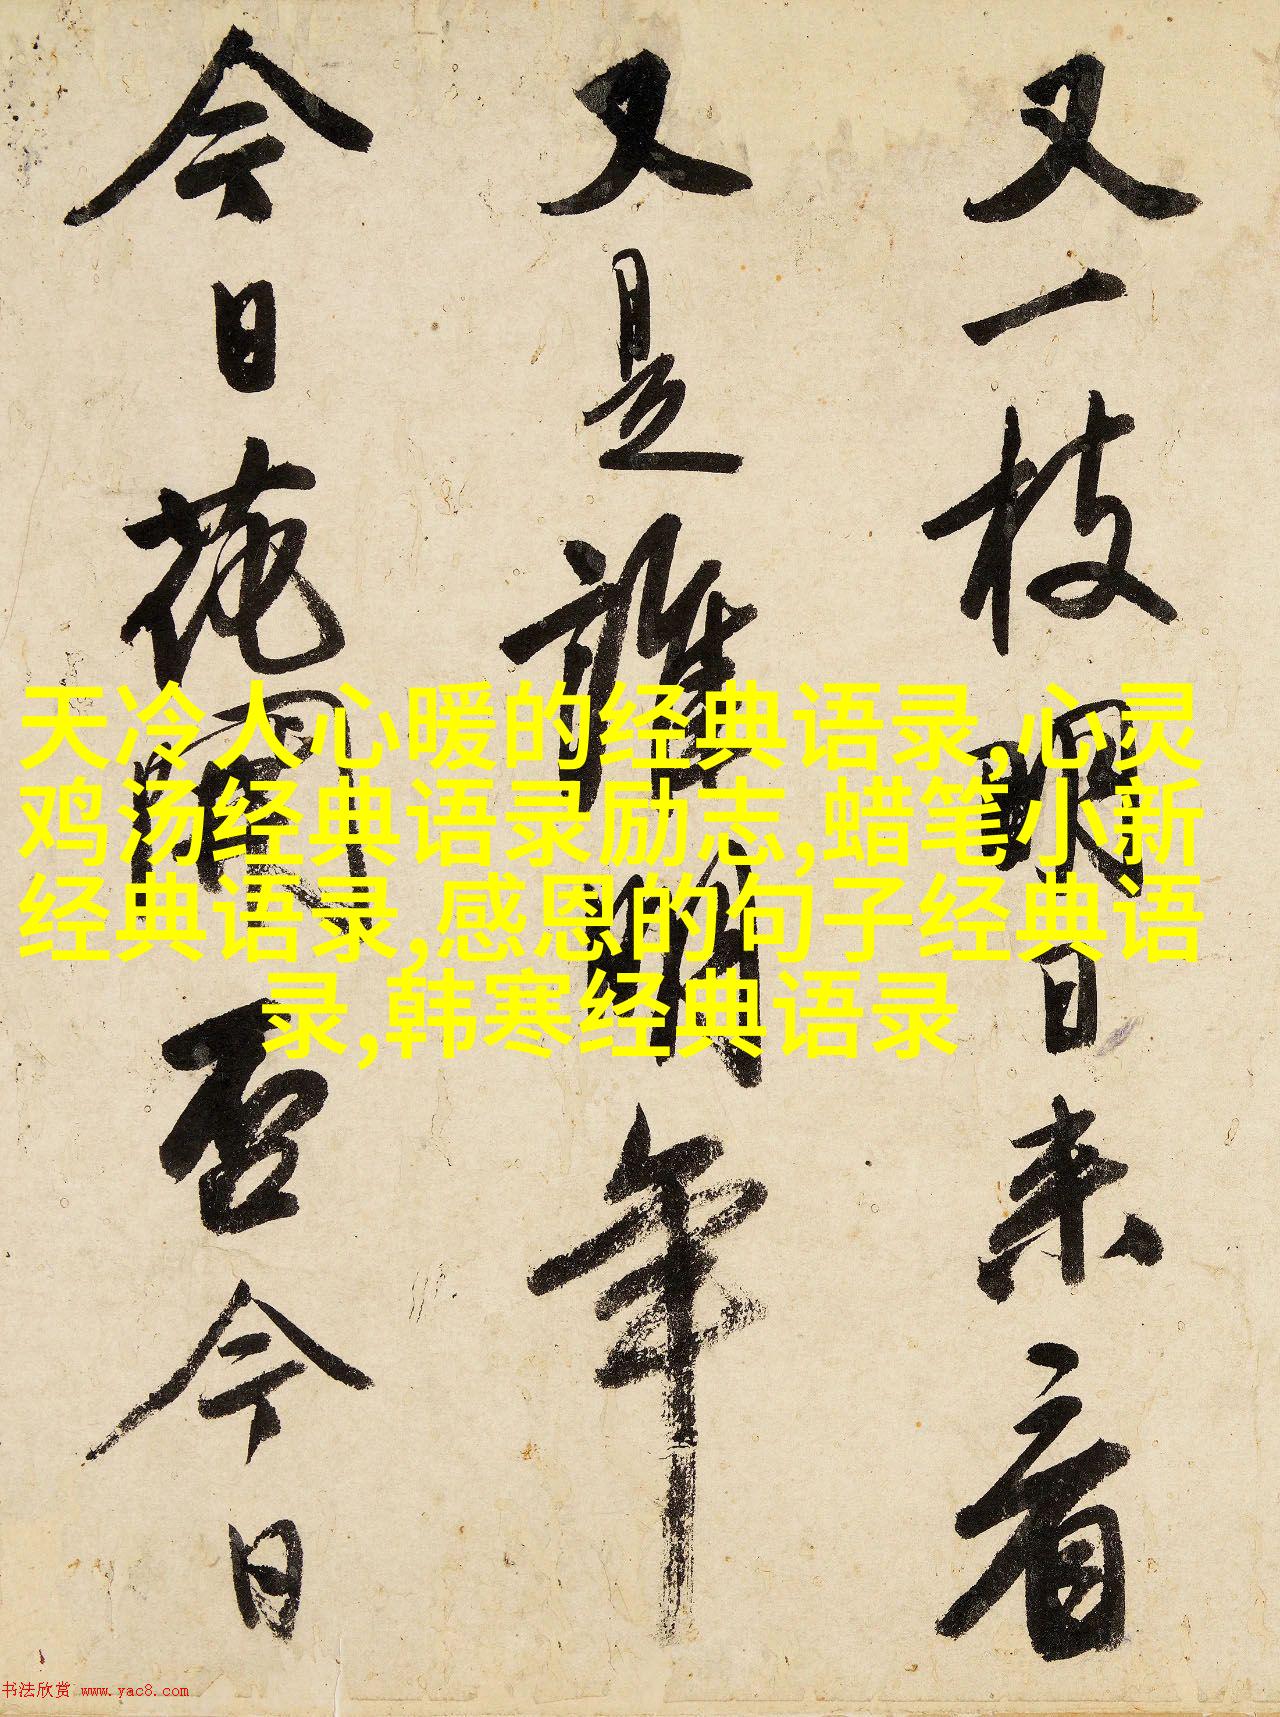 又一枝明日来看
又是誰明年
今日花開否今日
天冷人心暖的经典语录,心灵
鸡汤经典语录励志,蜡笔小新
经典语录,感恩的句子经典语
录,韩寒经典语录
书法欣赏 www.yac8.com